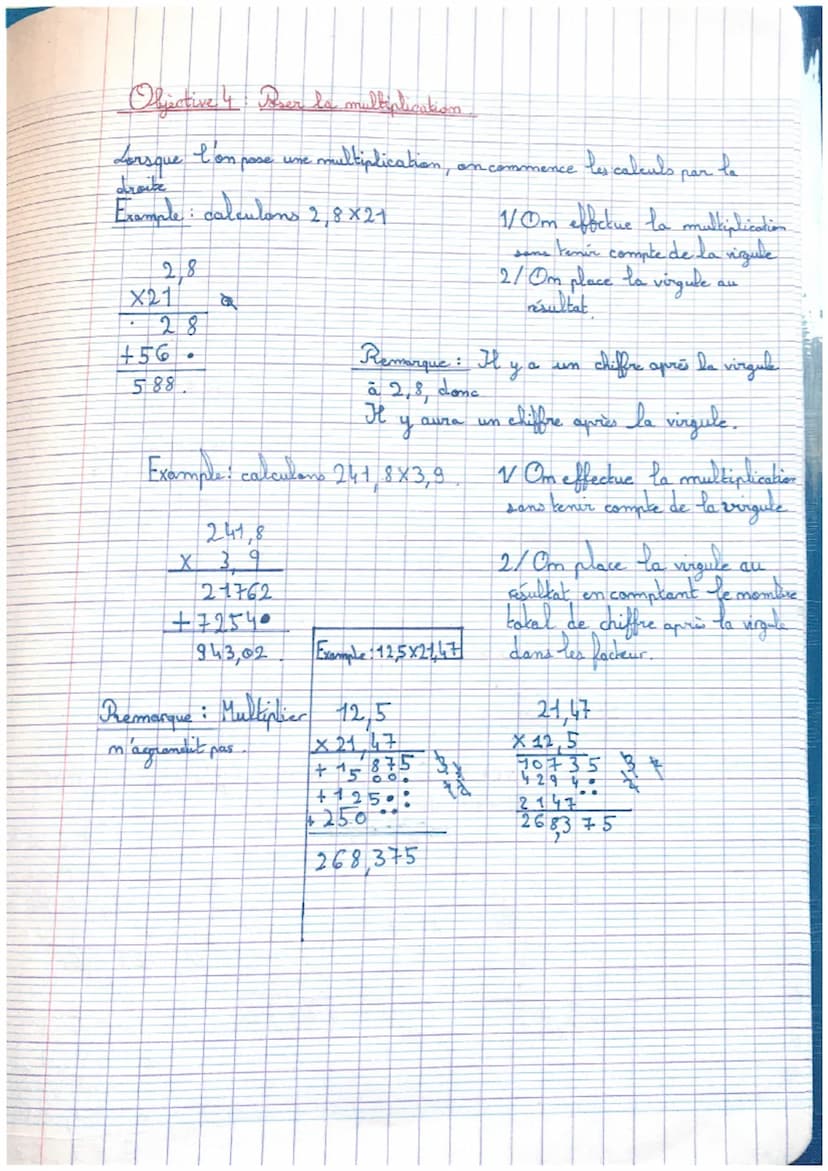 Objective 4 : Poser la multiplication.
Lorsque l'on pose une multiplication, on commence les calculs par la
droite
Example : calculons 2,8×21
2,8
×21
. 28
+56 •
588.
1/ On effectue la multiplication
sans tenir compte de la virgule
2/ On place la virgule au
résultat.
Remarque : Il y a un chiffre après la virgule
à 2,8, donc
Il y aura un chiffre après la virgule.
Example : calculons 241,8×3,9.
241,8
× 3,9
21762
+7254•
943,02.
1/ On effectue la multiplication
sans tenir compte de la virgule
2/ On place la virgule au
résultat en comptant le nombre
total de chiffre après la virgule
dans les facteur.
Remarque : Multiplier
n'agrandit pas.
Example : 12,5×21,47
12,5
×21,47
+ 1 875
5 00.
+125•:
+250
268,375
21,47
×12,5
10735
4294•
2147••
268,375